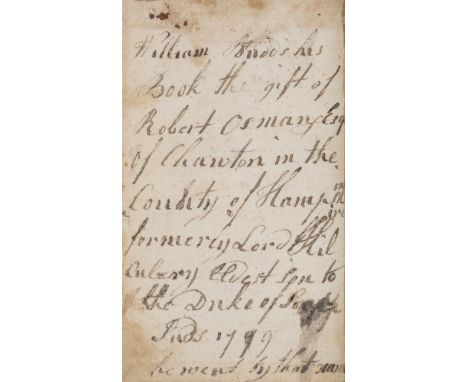 William his
Book the gift of
Robert Osman Esq
of Chawton in the
County of Hamp
formerly Lord
Eldest Son to
the Duke of
1799
he went by that nam